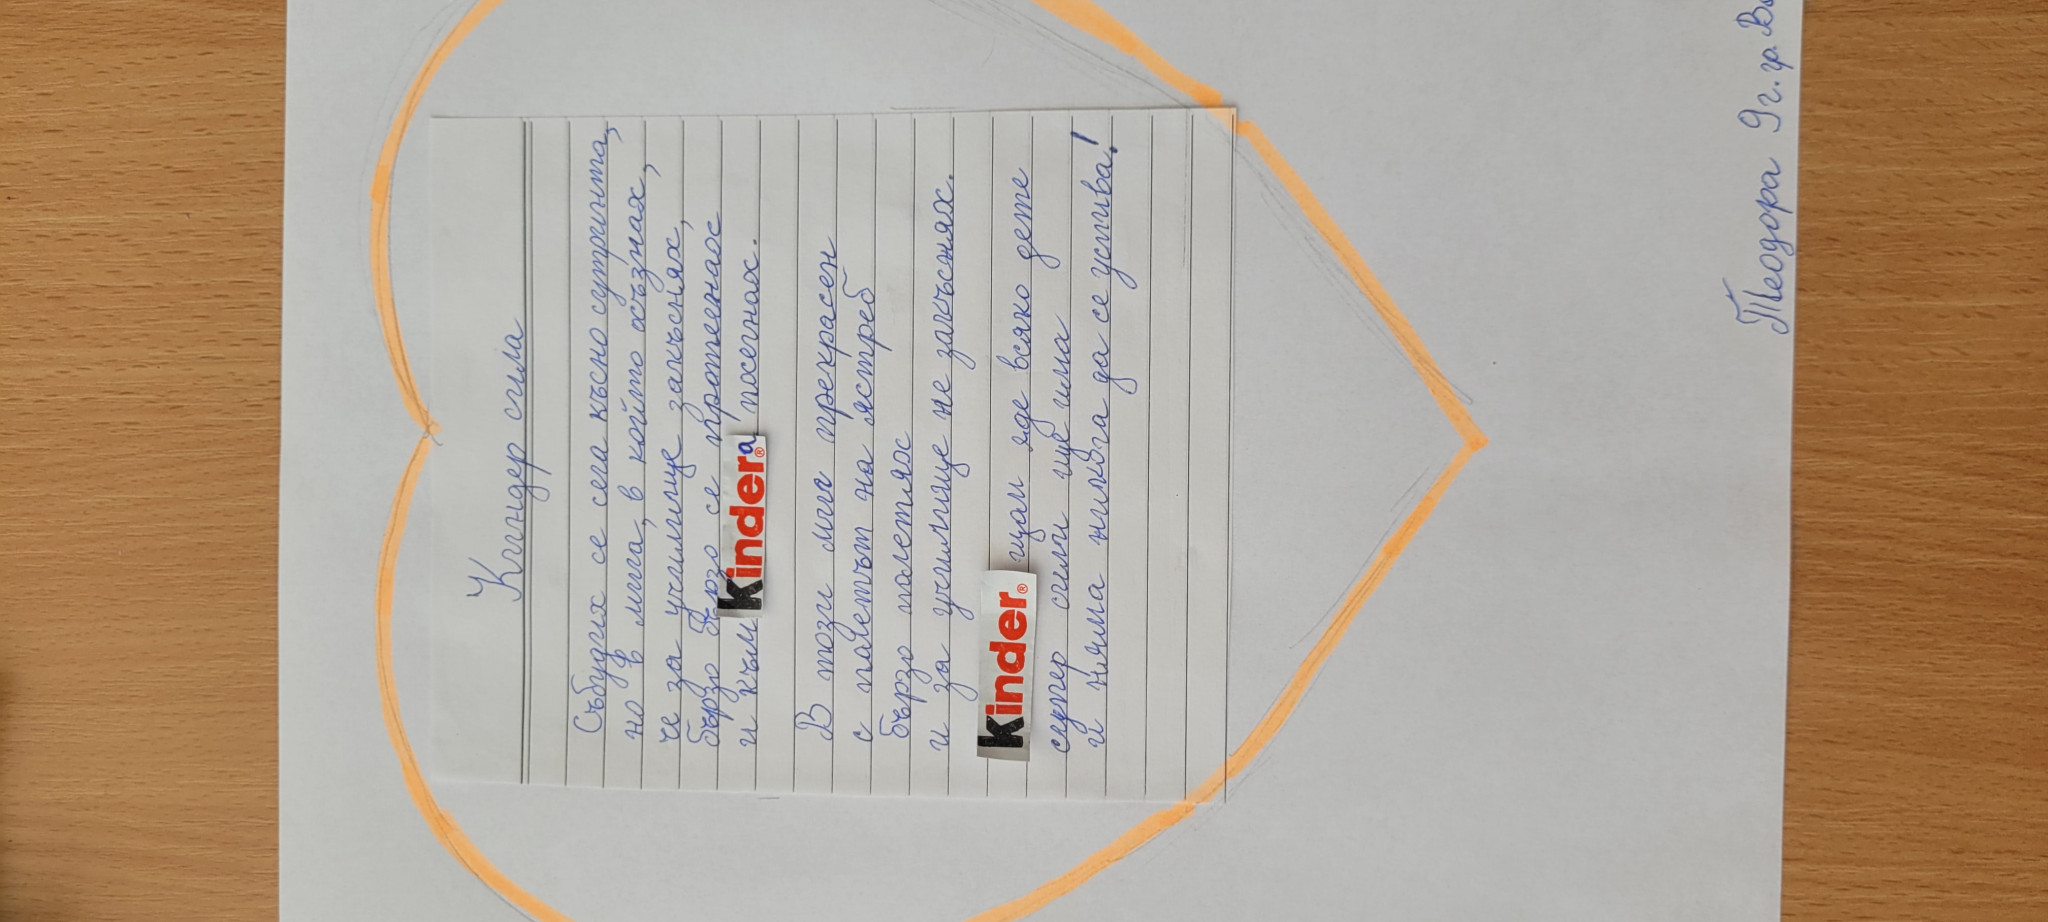 Киндер сила
Събудих се сега късно сутринта,
но в мига, в който осъзнах,
че за училище закъснях,
бързо бързо се протегнах
и към kinderа посегнах.
В този миг прекрасен
с полетът на ястреб
бързо полетях
и за училище не закъснях.
kinder щом яде всяко дете
супер сили ще има
и няма никога да се успива!
Теодора 9г. гр.